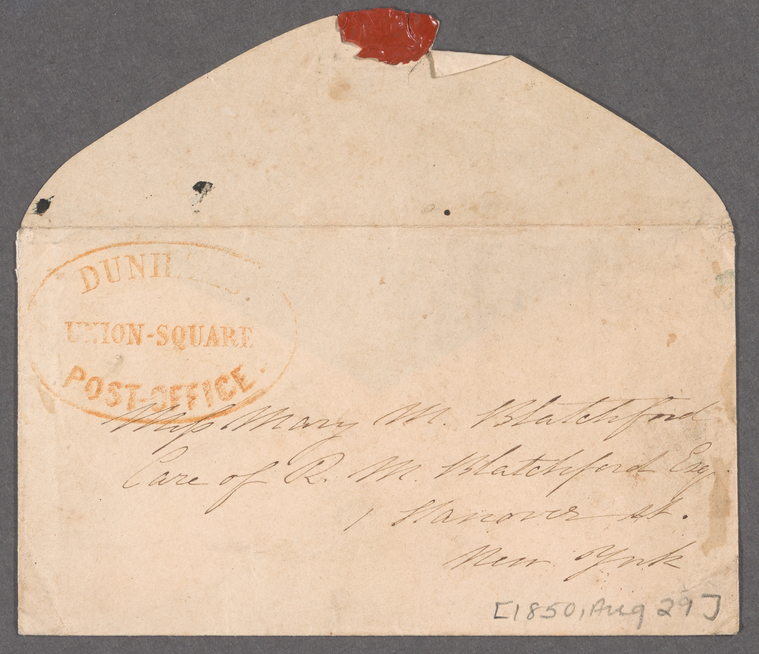 UNION-SQUARE
POST-OFFICE.
Miss Mary M. Blatchford
Care of R. M. Blatchford Esq.
1 Hanover St.
New York
[1850, Aug 29]